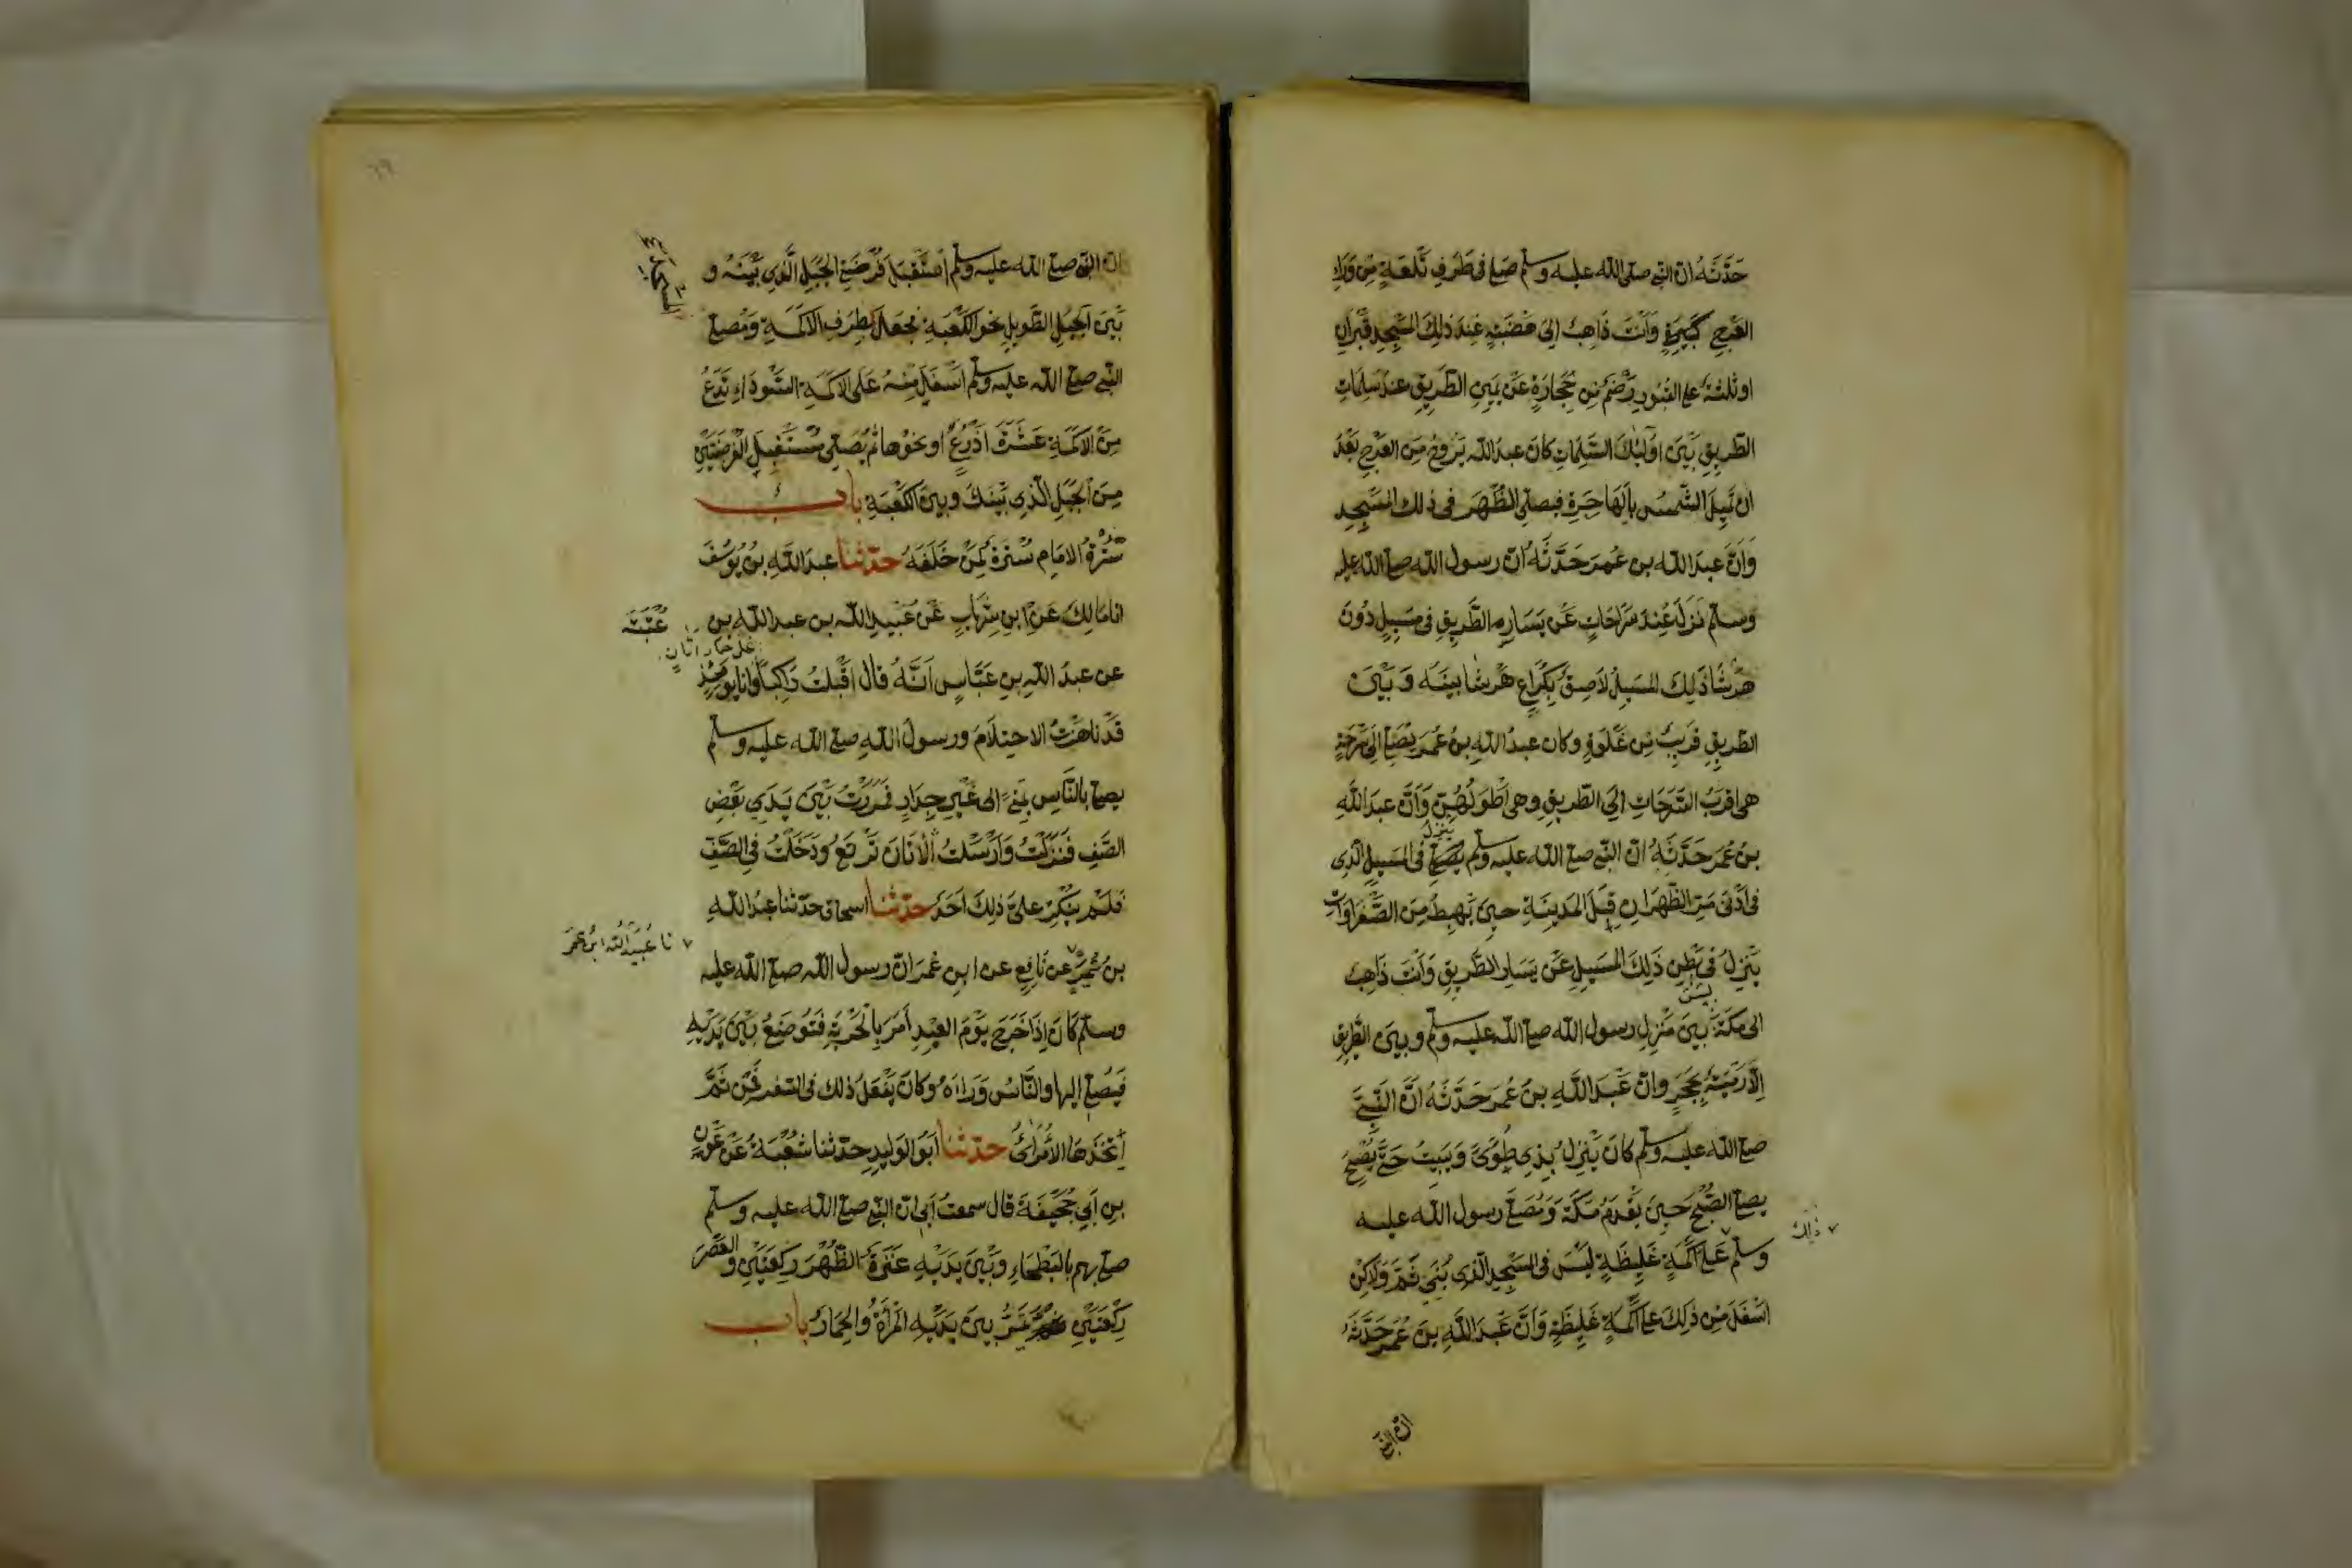 حَدَّثَهُ ان النبي صلى الله عليه وسلم صَلى في طَرَفِ تَلعَةٍ مِن وَرَاءِ
العَرجِ كَبيرَةٍ وَاَنتَ ذَاهِبٌ اِلى هَضبَةٍ عِندَ ذلِكَ المَسجِدِ قَبرَانِ
او ثلثة على القُبُورِ رَضمٌ مِن حِجَارَةٍ عَن يَمينِ الطَّريقِ عندَ سَلِمَاتِ
الطَّريقِ بَينَ اولئِكَ السَّلِمَاتِ كانَ عبدالله يَرُوحُ مِنَ العَرج بَعدَ
ان تَميلَ الشَّمسُ بِالهَاجِرَةِ فيصلي الظُهرَ في ذلك المَسجِدِ
وَاَنَّ عبدَالله بن عُمرَ حَدَّثَهُ اَن رسول الله صلى الله عليه
وسلم نَزَلَ عِندَ سَرَحَاتٍ عَن يَسَارِ الطَّريقِ في مَسِيلٍ دُونَ
هَرشَا ذلِكَ المَسِيلُ لاَصِقٌ بِكُرَاعِ هَرشا بينَهُ وَبَينَ
الطَّريقِ قَريبٌ مِن غَلوَةٍ وكان عبدُالله بنُ عُمَرَ يُصَلي اِلى سَرحَةٍ
هي اَقرَبُ السَّرَحَاتِ اِلىَ الطَّريقِ وهي اَطوَلُهُنَّ وَاَنَّ عبدَاللَّهِ
بنَ عُمَرَ حَدَّثَهُ انَّ النَّبي صلى الله عليه وسلم ينزل في المَسِيلِ الَّذِي
في اَدنى مَرِّ الظَّهرَانِ قِبَلَ المَدِينَةِ حينَ تَهبِطُ مِنَ الصَّفراواتِ
يَنزِلُ في بَطنِ ذَلِكَ المَسِيلِ عَن يَسَارِ الطَّرِيقِ وَاَنتَ ذَاهِبٌ
الى مَكّةَ ليس بَينَ مَنزِلِ رسول الله صلى الله عليه وسلم وبينَ الطَّرِيقِ
اِلاَّ رَميَةٌ بِحَجَرٍ وانَّ عَبدَ اللَّهِ بنَ عُمرَ حَدَّثَهُ اَنَّ النَّبِيَّ
صلى الله عليه وسلم كانَ يَنزِلُ بِذِي طُوًى وَيَبِيتُ حَتَّى يُصبِحَ
يصلي الصُّبحَ حينَ يَقدَمُ مَكَّةَ وَمُصَلَّى رسول الله عليه
وسلم ذلك عَلى اَكَمَةٍ غَليظَةٍ لَيسَ في المَسجِدِ الَّذِي بُنِيَ ثَمَّ وَلَكِن
اَسفَلَ مِن ذلِكَ على اَكَمَةٍ غَلِيظَةٍ وَاَنَّ عَبدَ اللَّهِ بنَ عُمَرَ حَدَّثَهُ
انّ النبي
انّ النبي صلى الله عليه وسلم اَستَقبَلَ فُرضَتَيِ الجَبَلِ الَّذِي بَينَهُ وَ
بَينَ الجَبَلِ الطَّويلِ نحوَ الكَعبَةِ فجعَلَ بِطرَفِ الاَكَمَةِ وَمُصلى
النَّبي صلى الله عليه وسلم اَسفَلَ مِنهُ عَلى الاكَمَةِ السَّودَاءِ تَدَعُ
مِنَ الاَكَمَةِ عَشَرَةَ اَذرُعٍ او نحوَها ثم يُصَلي مُستَقبِلَ الفُرضَتَينِ
مِنَ الجَبَلِ الَّذِي بَينَكَ وبينَ الكَعبَةِ باب
سُترَةُ الاِمَامِ سُترَةُ مَن خَلفَهُ حدّثنا عبدالله بنُ يُوسُفَ
انا مَالِكٌ عَن ابنِ شِهَابٍ عَن عُبَيدِ الله بن عبدالله بنِ عُتبَة
عن عبدِ الله بنِ عَبَّاسٍ اَنَّهُ قال اَقبَلتُ رَاكِباً على حمار اتان وانا يومئذٍ
قَد ناهَزتُ الاحتِلاَمَ ورسولُ الله صلى الله عليه وسلم
يصلي بِالنَّاسِ بِمنىً الى غَيرِ جِدَارٍ فَمَرَرتُ بَينَ يَدَي بَعضِ
الصَّفِ فَنَزَلتُ وَاَرسَلتُ الاَتَانَ تَرتَعُ وَدَخَلتُ في الصَّفِّ
فَلَم يُنكِر عَليَّ ذلِكَ اَحَدٌ حدّثنا اسحاق حدّثنا عبدُالله
بن نُمَيرٍ نا عُبَيدُالله ابنُ عمَرَ عن نَافِعٍ عن ابنِ عُمَرَ انّ رسول الله صلى الله عليه
وسلم كانَ اِذَا خَرَجَ يَومَ العِيدِ اَمَرَ بِالحَربَةِ فَتُوضَعُ بَينَ يَدَيهِ
فَيُصَلي اِليها والنَّاسُ وَرَاءَهُ وكانَ يَفعَلُ ذلك في السَّفَرِ فَمِن ثَمَّ
اَتَّخَذَهَا الاُمَرَاءُ حدّثنا اَبُو الوَليدِ حدّثنا شُعبَةُ عَن عَونِ
بنِ اَبي جُحَيفَةَ قال سمعتُ اَبي اَنّ النَّبي صلى الله عليه وسلم
صلى بهم بالبَطحَاءِ وَبَينَ يَدَيهِ عَنَزَةٌ الظُّهرَ رَكعَتَينِ والعَصرَ
رَكعَتَينِ تَمُرُّ بينَ يَدَيهِ المَرأةُ والحِمَارُ باب